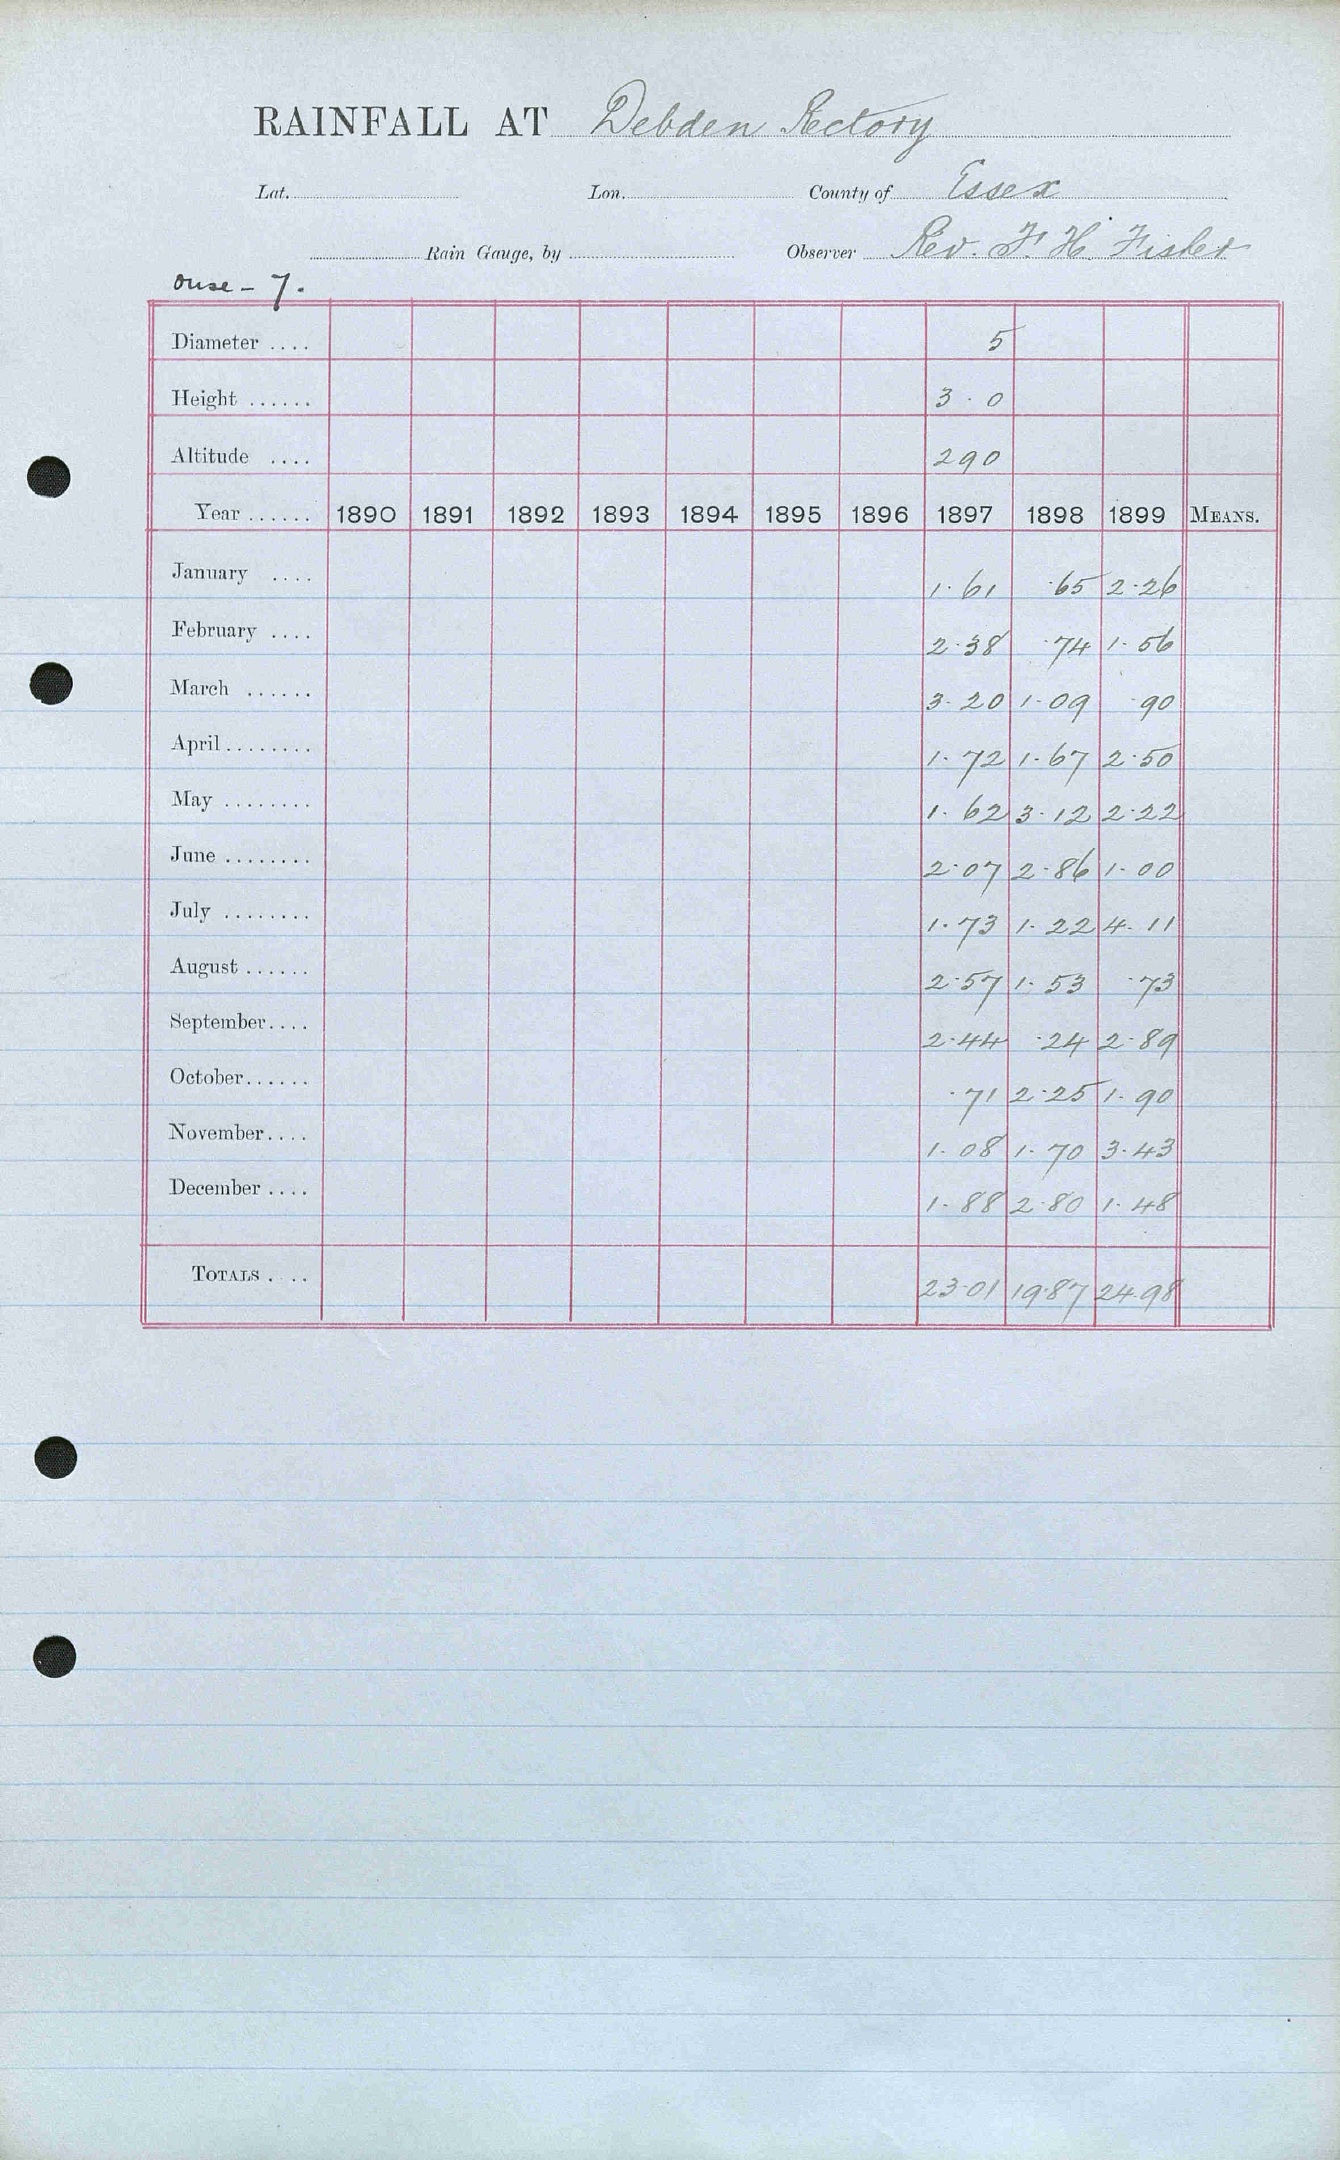 RAINFALL AT Debden Rectory
Lat. Lon. County of Essex
Rain Gauge, by Observer Rev. F. H. Fisher
Ouse - 7.
Diameter .... 5
Height ...... 3 . 0
Altitude .... 290
Year ...... 1890 1891 1892 1893 1894 1895 1896 1897 1898 1899 MEANS.
January .... 1.61 .65 2.26
February .... 2.38 .74 1.56
March ...... 3.20 1.09 .90
April ........ 1.72 1.67 2.50
May ........ 1.62 3.12 2.22
June ........ 2.07 2.86 1.00
July ........ 1.73 1.22 4.11
August ...... 2.57 1.53 .73
September.... 2.44 .24 2.89
October...... .71 2.25 1.90
November.... 1.08 1.70 3.43
December .... 1.88 2.80 1.48
TOTALS .... 23.01 19.87 24.98